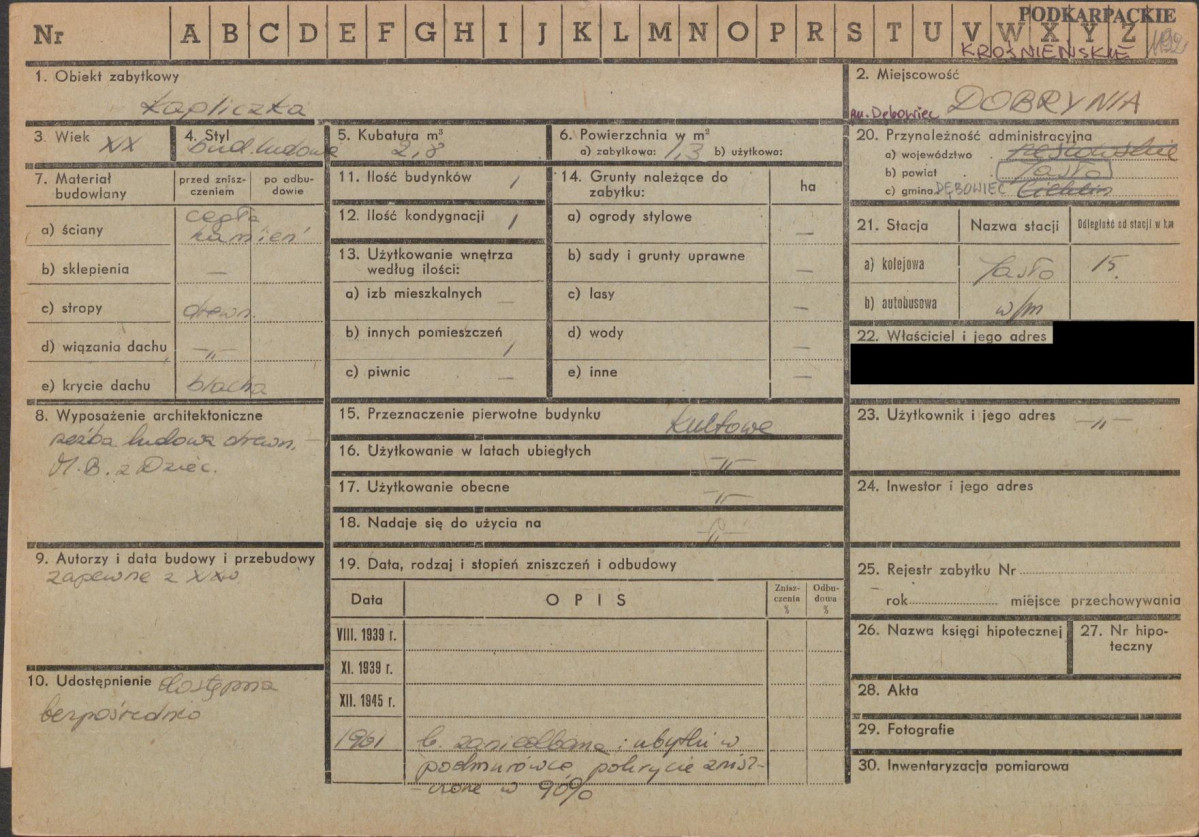 Nr A B C D E F G H I J K L M N O P R S T U V W X Y Z
PODKARPACKIE
KROŚNIEŃSKIE
1. Obiekt zabytkowy
Kapliczka
2. Miejscowość
DOBRYNIA
3. Wiek XX
4. Styl
bud. ludowe
5. Kubatura m³
2,8
6. Powierzchnia w m²
a) zabytkowa: 1,3 b) użytkowa:
20. Przynależność administracyjna
a) województwo rzeszowskie
b) powiat Jasło
c) gmina DĘBOWIEC
7. Materiał budowlany
przed zniszczeniem
po odbudowie
a) ściany cegła
kamień
b) sklepienia —
c) stropy drewn.
d) wiązania dachu —„—
e) krycie dachu blacha
11. Ilość budynków 1
12. Ilość kondygnacji 1
13. Użytkowanie wnętrza według ilości:
a) izb mieszkalnych —
b) innych pomieszczeń 1
c) piwnic —
14. Grunty należące do zabytku:
ha
a) ogrody stylowe —
b) sady i grunty uprawne —
c) lasy —
d) wody —
e) inne —
21. Stacja
Nazwa stacji
Odległość od stacji w km
a) kolejowa Jasło 15.
b) autobusowa w/m
22. Właściciel i jego adres
8. Wyposażenie architektoniczne
rzeźba ludowa drewn. –
M.B. z Dziec.
15. Przeznaczenie pierwotne budynku
Kultowe
16. Użytkowanie w latach ubiegłych —„—
17. Użytkowanie obecne —„—
18. Nadaje się do użycia na —„—
23. Użytkownik i jego adres —„—
24. Inwestor i jego adres
9. Autorzy i data budowy i przebudowy
zapewne z XX w
19. Data, rodzaj i stopień zniszczeń i odbudowy
Data
OPIS
Zniszczenia %
Odbudowa %
VIII. 1939 r.
XI. 1939 r.
XII. 1945 r.
1961 b. zaniedbana; ubytki w
podmurówce, pokrycie znisz-
-czone w 90%
10. Udostępnienie dostępna
bezpośrednio
25. Rejestr zabytku Nr
rok miejsce przechowywania
26. Nazwa księgi hipotecznej
27. Nr hipoteczny
28. Akta
29. Fotografie
30. Inwentaryzacja pomiarowa